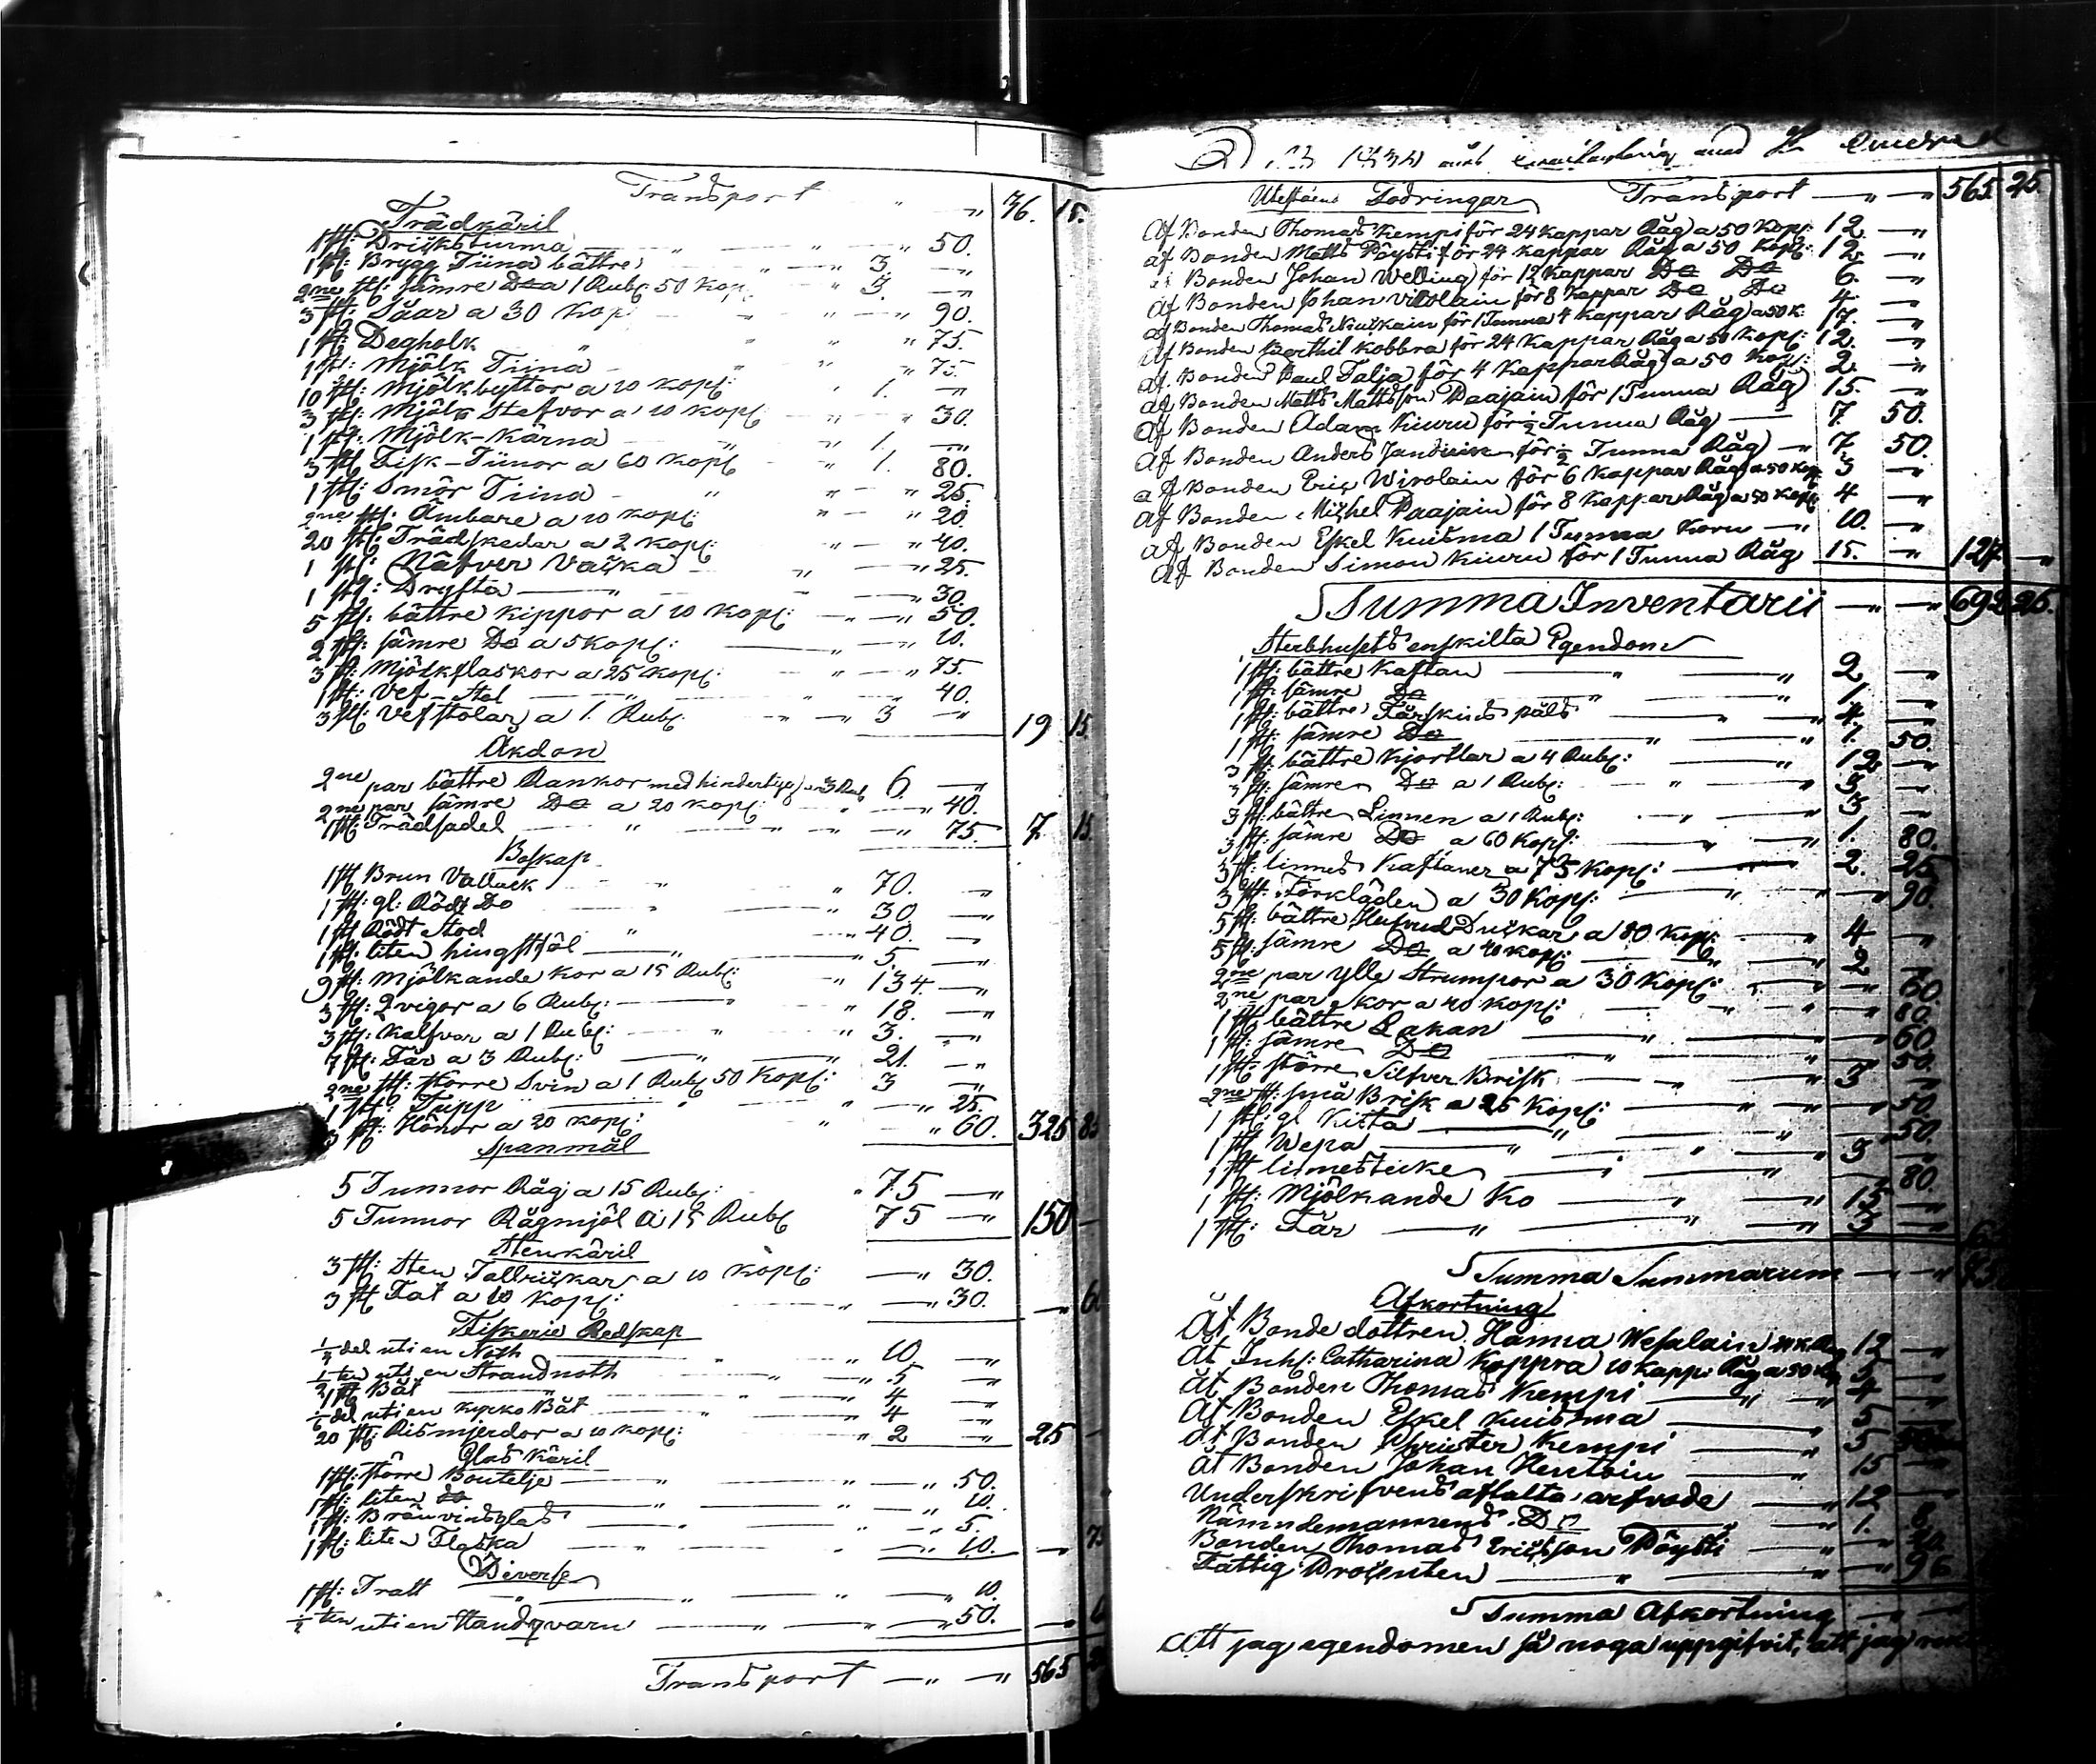 Transport 36. 15.
Trädkäril
1 st: Dricks tunna 50.
1 st: Brygg Tiina bättre 3. —
2ne st: sämre Do a 1 Rub: 50 kop 3. —
3 st: Såar a 30 kop 90.
1 st: Degholk 75.
1 st: Mjölk Tiina 75.
10 st: Mjölkbyttor a 10 kop: 1. —
3 st: Mjölk Stefvor a 10 kop: 30.
1 st: Mjölk-Kärna 1. —
3 st Fisk-Tiinor a 60 kop: 1. 80.
1 st: Smör Tiina 25.
2ne st: Ämbare a 10 kop: 20.
20 st: Trädskedar a 2 kop: 40.
1 st: Näfver Vacka 25.
1 st: Dryfta 30.
5 st: bättre kippor a 10 kop: 50.
2 st: sämre Do a 5 kop: 10.
3 st: Mjölkflaskor a 25 kop: 75.
1 st: Vef-Stol 40.
3 st: Vefstolar a 1. Rub: 3 — 19 15
Åkdon
2ne par bättre Rankor med a 3 Rub 6. —
2ne par sämre Do a 20 kop: 40.
1 st: Trädsadel 75. 7 15
Boskap
1 st Brun Vallack 70. —
1 st: gl: Rödt Do 30. —
1 st Rödt Stod 40. —
1 st: liten hingstföl 5. —
9 st: Mjölkande kor a 15 Rub: 134. —
3 st: Qvigor a 6 Rub: 18. —
3 st: Kalfvar a 1 Rub: 3. —
7 st: Får a 3 Rub: 21. —
2ne st: större Svin a 1 Rub 50 kop: 3 —
1 st: Tupp 25.
3 st: Hönor a 20 kop: 60. 325 85
Spanmål
5 Tunnor Råg a 15 Rub: 75 —
5 Tunnor Rågmjöl a 15 Rub 75 — 150 —
Stenkäril
3 st: Sten Tallrickar a 10 kop: 30.
3 st Fat a 10 kop: 30. —
Fiskerie Redskap
¼ del uti en Noth 10 —
½ten uti en Strandnoth 5 —
2 st Båt 4 —
1/6 del uti en kyrko Båt 4 —
20 st: Rismjerdor a 10 kop: 2 — 25 —
Glas Käril
1 st: större Boutelje 50.
1 st: liten do 10.
1 st: Bränvinsglas 5.
1 st: liten Flaska 10. — 75
Diverse
1 st: Tratt 10.
½ten uti en Handqvarn 50. —
Transport 565
Utestående Fodringar Transport 565 25
Af Bonden Thomas Kempi för 24 kappar Råg a 50 kop: 12 —
af Bonden Matts Pöysti för 24 kappar Råg a 50 kop: 12. —
Bonden Johan Welling för 12 kappar Do Do 6. —
Af Bonden Johan Virolain för 8 kappar Do Do 4. —
af Bonden Thomas för 1 Tunna 4 kappar Råg a 50 k: 17. —
Af Bonden Berthil Kobbra för 24 kappar Råg a 50 kop: 12. —
af Bonden Paul Talja för 4 kappar Råg a 50 kop: 2. —
af Bonden Matts Mattsson Paajain för 1 Tunna Råg 15. —
Af Bonden Adam Kiuru för ½ Tunna Råg 7. 50.
Af Bonden Anders för ½ Tunna Råg 7. 50.
af Bonden Eric Wirolain för 6 kappar Råg a 50 kop 3 —
Af Bonden Michel Paajain för 8 kappar Råg a 50 kop 4 —
af Bonden Eskel Kuisma 1 Tunna Korn 10. —
Af Bonden Simon Kiuru för 1 Tunna Råg 15. — 127 —
Summa Inventarii 692 25.
Sterbhusets enskilta Egendom
1 st: bättre Kaftan 2 —
1 st: sämre Do 1. —
1 st: bättre Fårskinds päls 4. —
1 st: sämre Do 1. 50.
3 st: bättre kjortlar a 4 Rub: 12 —
3 st: sämre Do a 1 Rub: 3. —
3 st: bättre Linnen a 1 Rub: 3 —
3 st: sämre Do a 60 kop: 1. 80.
3 st: linnes Kaftaner a 75 kop: 2. 25
3 st: Förkläden a 30 kop: — 90.
5 st: bättre Hufvud Duckar a 80 kop: 4 —
5 st: sämre Do a 40 kop: 2 —
2ne par ylle Strumpor a 30 kop: — 60.
2ne par Skor a 40 kop: — 80.
1 st: bättre Lakan — 60.
1 st: sämre Do — 50.
1 st: större Silfver Brisk 3 —
2ne st: små Brisk a 25 kop: — 50.
1 st: gl Kista — 50.
1 st Wepa 3 —
1 st — 80.
1 st: Mjölkande Ko 15 —
1 st: Får 3 —
Summa Summarum
Afkortning
Åt Bonde dottren Hanna 12 —
Åt Inh: Catharina Koppra 10 kapp: Råg a 50 kop 5 —
Åt Bonden Thomas Kempi 4 —
Åt Bonden Eskel Kuisma 5 —
Åt Bonden Christer Kempi 5 50
Åt Bonden Johan 15 —
Underskrifvens aflalta arfvode 12 —
Nämndemannens Do 1.
Bonden Thomas Ericsson Pöysti —
Fattig Procenten — 96
Summa Afkortning
Att jag egendomen så noga uppgifvit, att jag